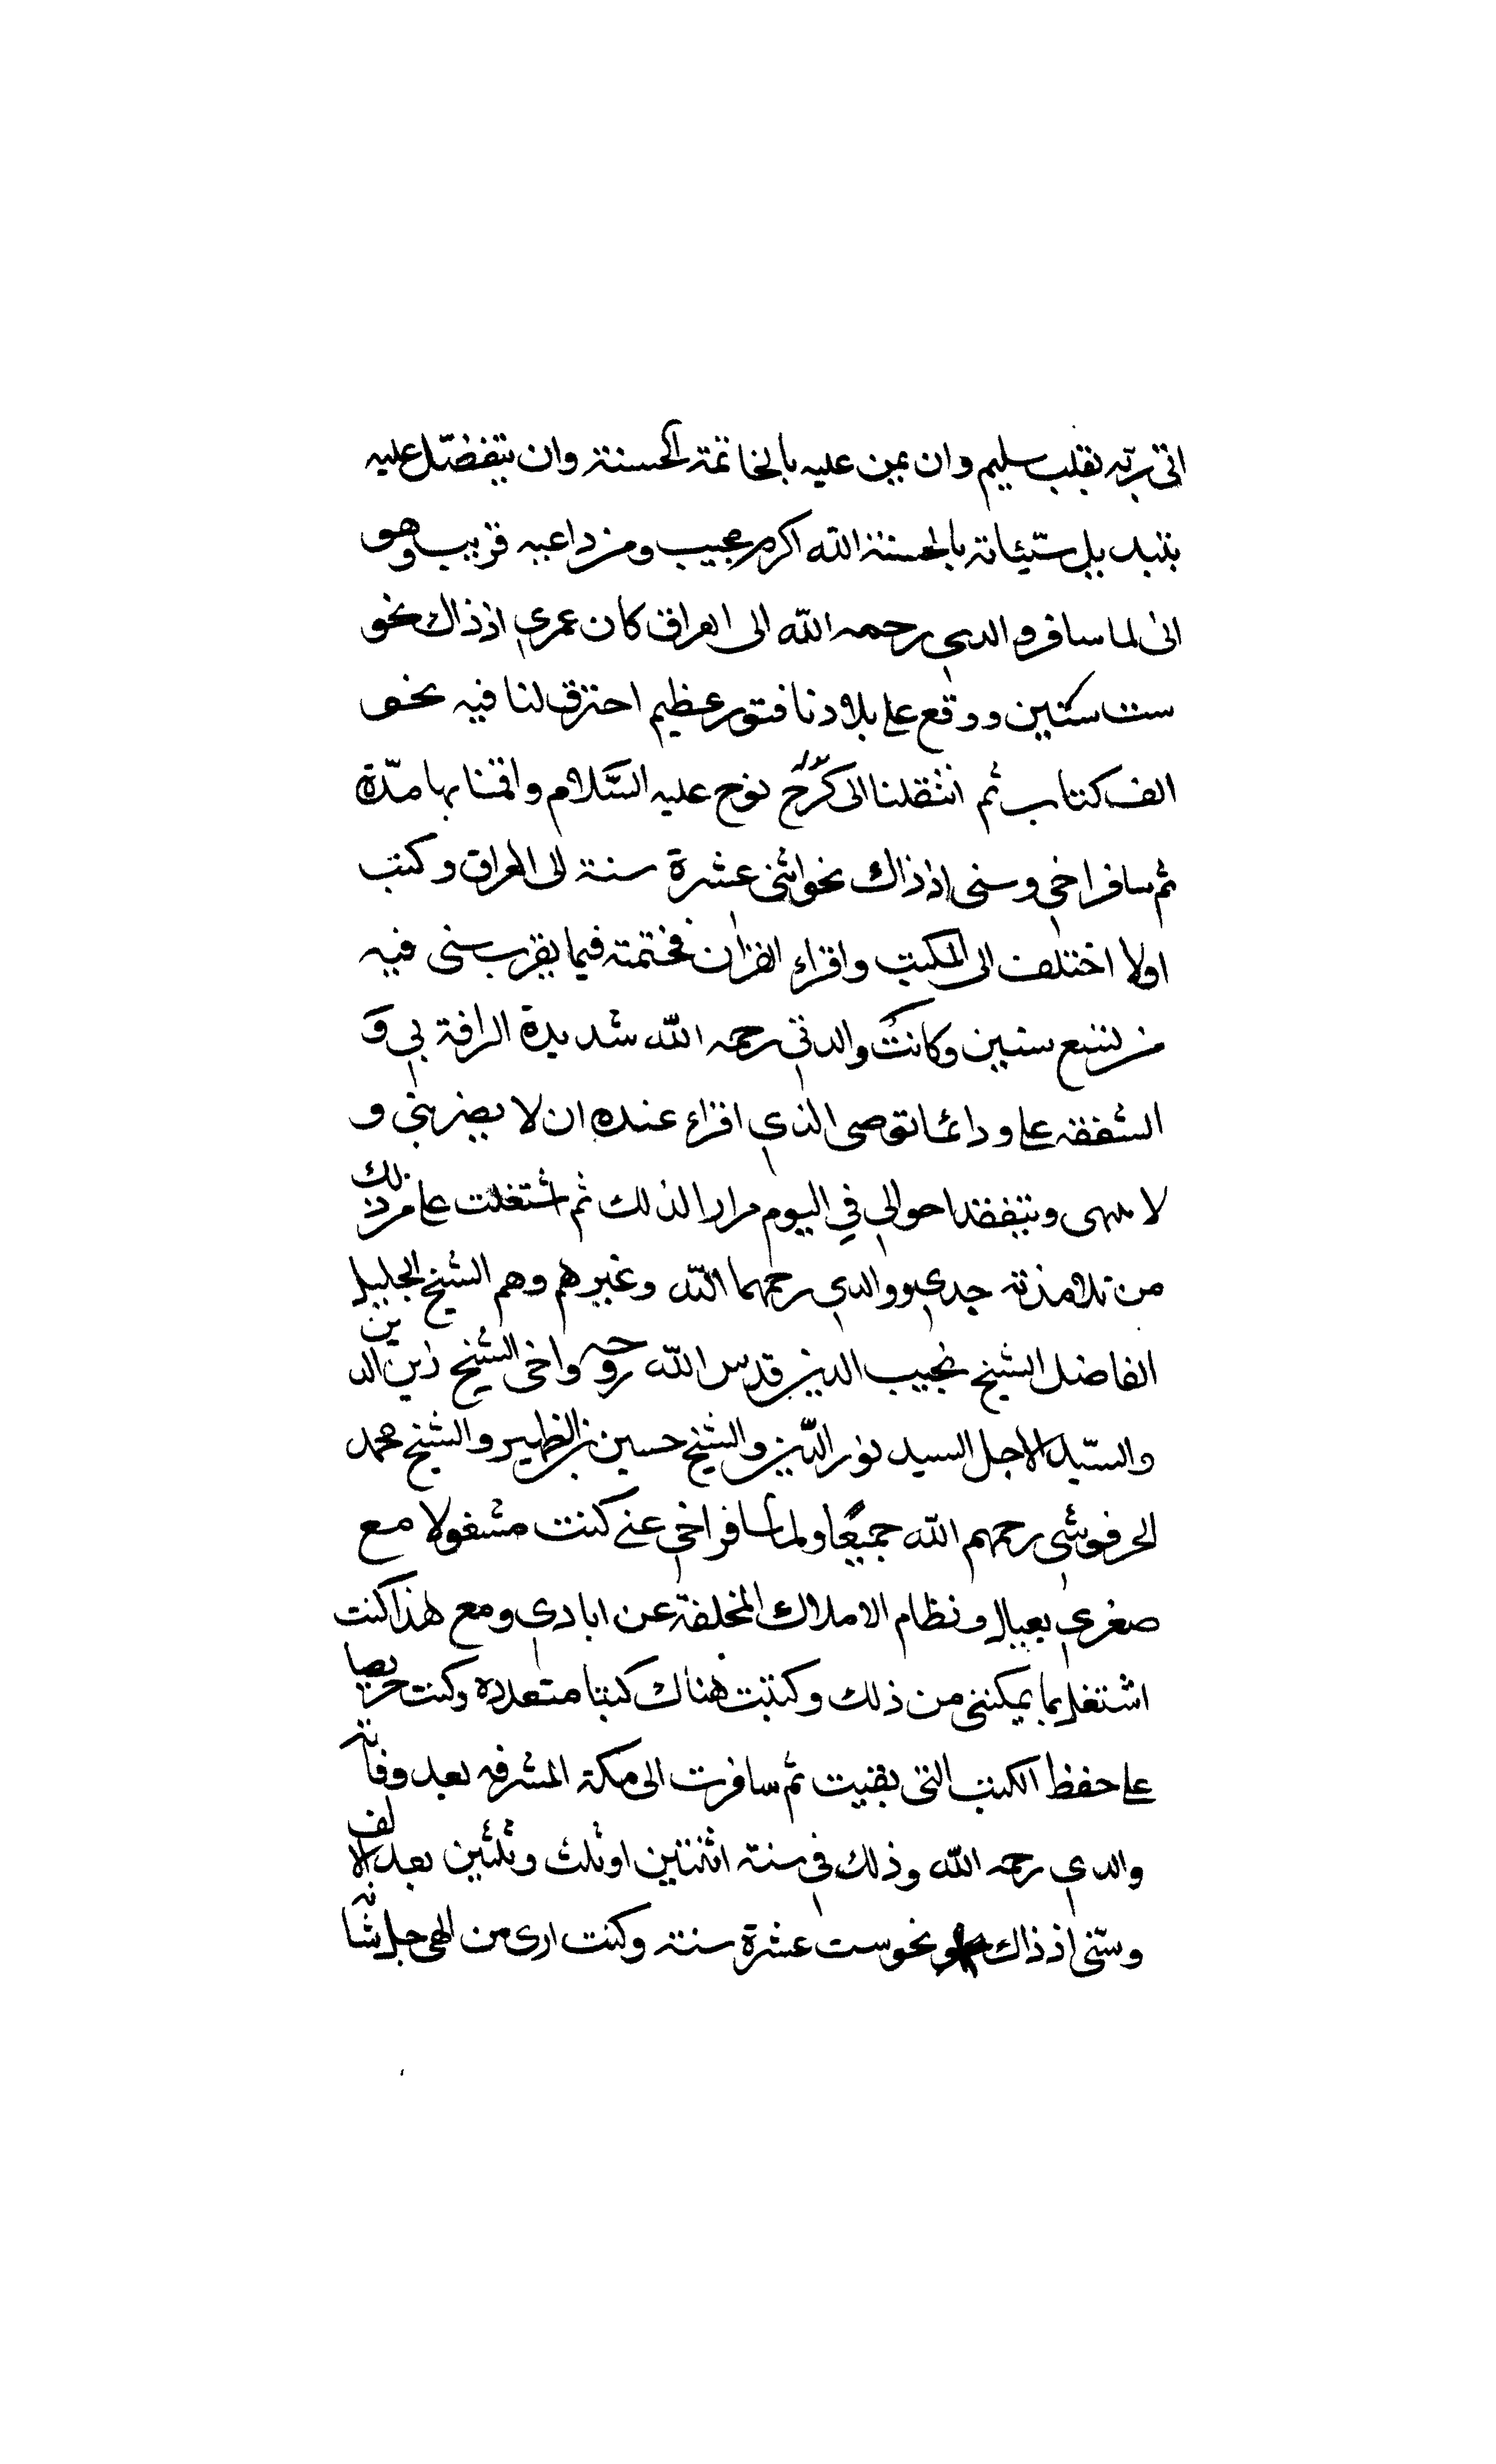 اتى ربه بقلب سليم وان يمن عليه بالخاتمة الحسنة وان يتفضّل عليه
بتبديل سيّئاته بالحسنة الله اكرم مجيب ومن داعيه قريب وهو
انى لما سافر والدي رحمه الله الى العراق كان عمري اذ ذاك نحو
ست سنين ووقع على بلادنا فتور عظيم احترق لنا فيه نحو
الف كتاب ثم انتقلنا الى كرك نوح عليه السَّلام واقمنا بها مدّة
ثم سافر اخي وسنى اذ ذاك نحو اثنى عشرة سنة الى العراق وكنت
اولا اختلف الى المكتب واقراء القران فختمته فيما يقرب سنى فيه
من تسع سنين وكانت والدتي رحمه الله شديدة الرافة بي وَ
الشفقه على ودائما توصى الذي اقراء عنده ان لا يضربني و
لا ينهى وتتفقد احوالي في اليوم مرارا لذلك ثم اشتغلت على من ذلك
من تلامذته جدي ووالدي رحمهما الله وغيرهم وهم الشيخ الجليل
الفاضل الشيخ نجيب الدين قدس الله روحه واخى الشيخ زين الدين
والسّيد الاجل السيد نور الدّين والشيخ حسين بن الظهير والشيخ محمد
الحرفوشي رحمهم الله جميعًا ولما سافر اخي عنى كنت مشغولا مع
صغري بعيال ونظام الاملاك المخلفة عن ابادي ومع هذا كنت
اشتغل بما يمكننى من ذلك وكتبت هناك كتبا متعدده وكنت حريصا
على حفظ الكتب التى بقيت ثم سافرت الى مكة المشرفه بعد وفاته
والدي رحمه الله وذلك في سنة اثنتين او ثلث وثلثين بعد الالف
وسنّى اذ ذاك نحو ست عشرة سنة وكنت ارى من الهى جل شانه